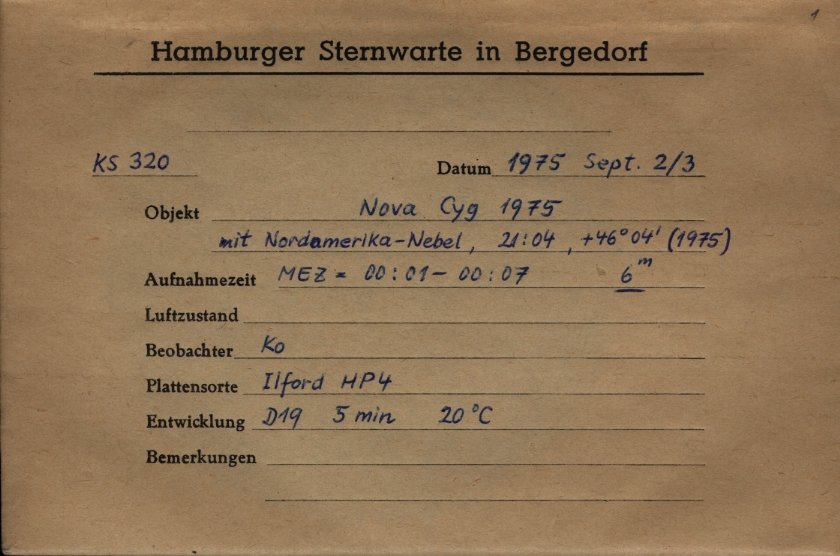 1
Hamburger Sternwarte in Bergedorf
KS 320 Datum 1975 Sept. 2/3
Objekt Nova Cyg 1975
mit Nordamerika-Nebel, 21:04, +46°04' (1975)
Aufnahmezeit MEZ = 00:01 - 00:07 6m
Luftzustand
Beobachter Ko
Plattensorte Ilford HP4
Entwicklung D19 5 min 20°C
Bemerkungen